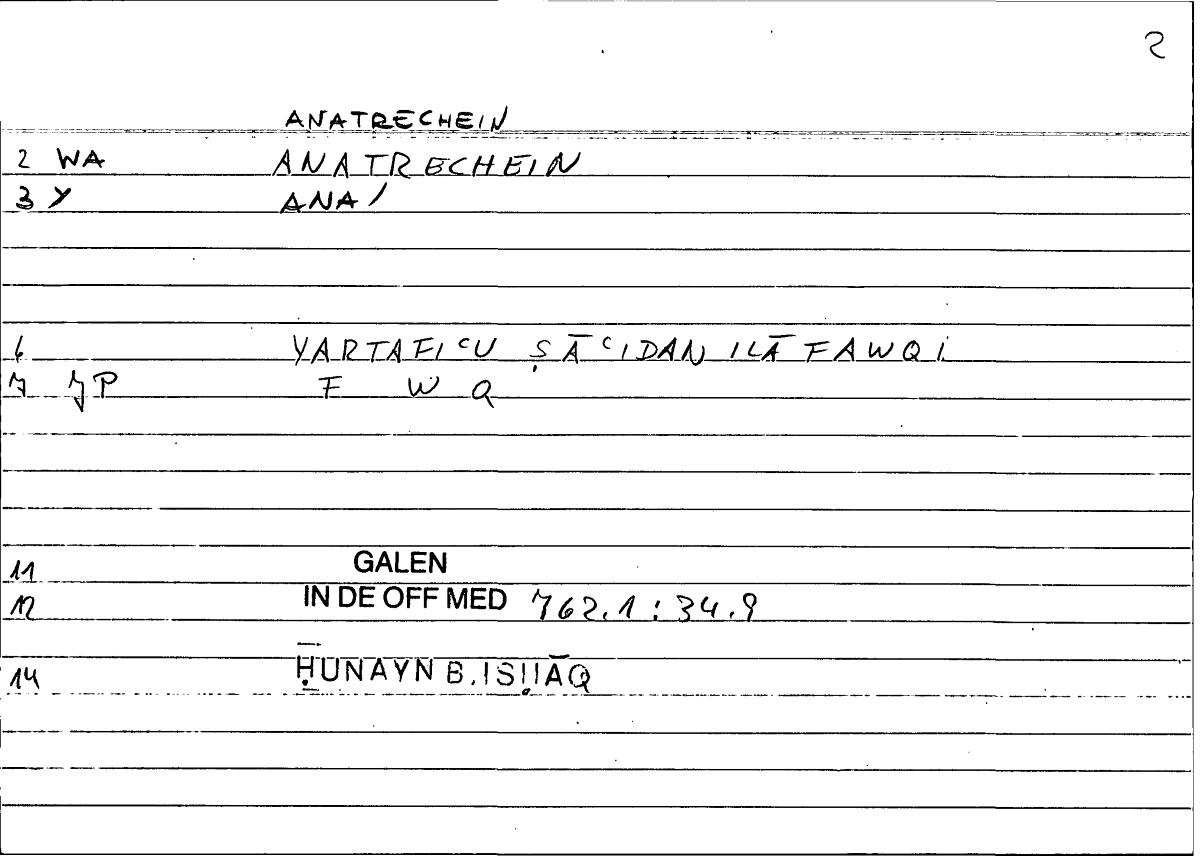 2
ANATRECHEIN
2 WA ANATRECHEIN
3 Y ANA/
6 YARTAFIᶜU ṢĀᶜIDAN ILĀ FAWQI
7 JP F W Q
11 GALEN
12 IN DE OFF MED 762.1 : 34.9
14 ḤUNAYN B. ISḤĀQ